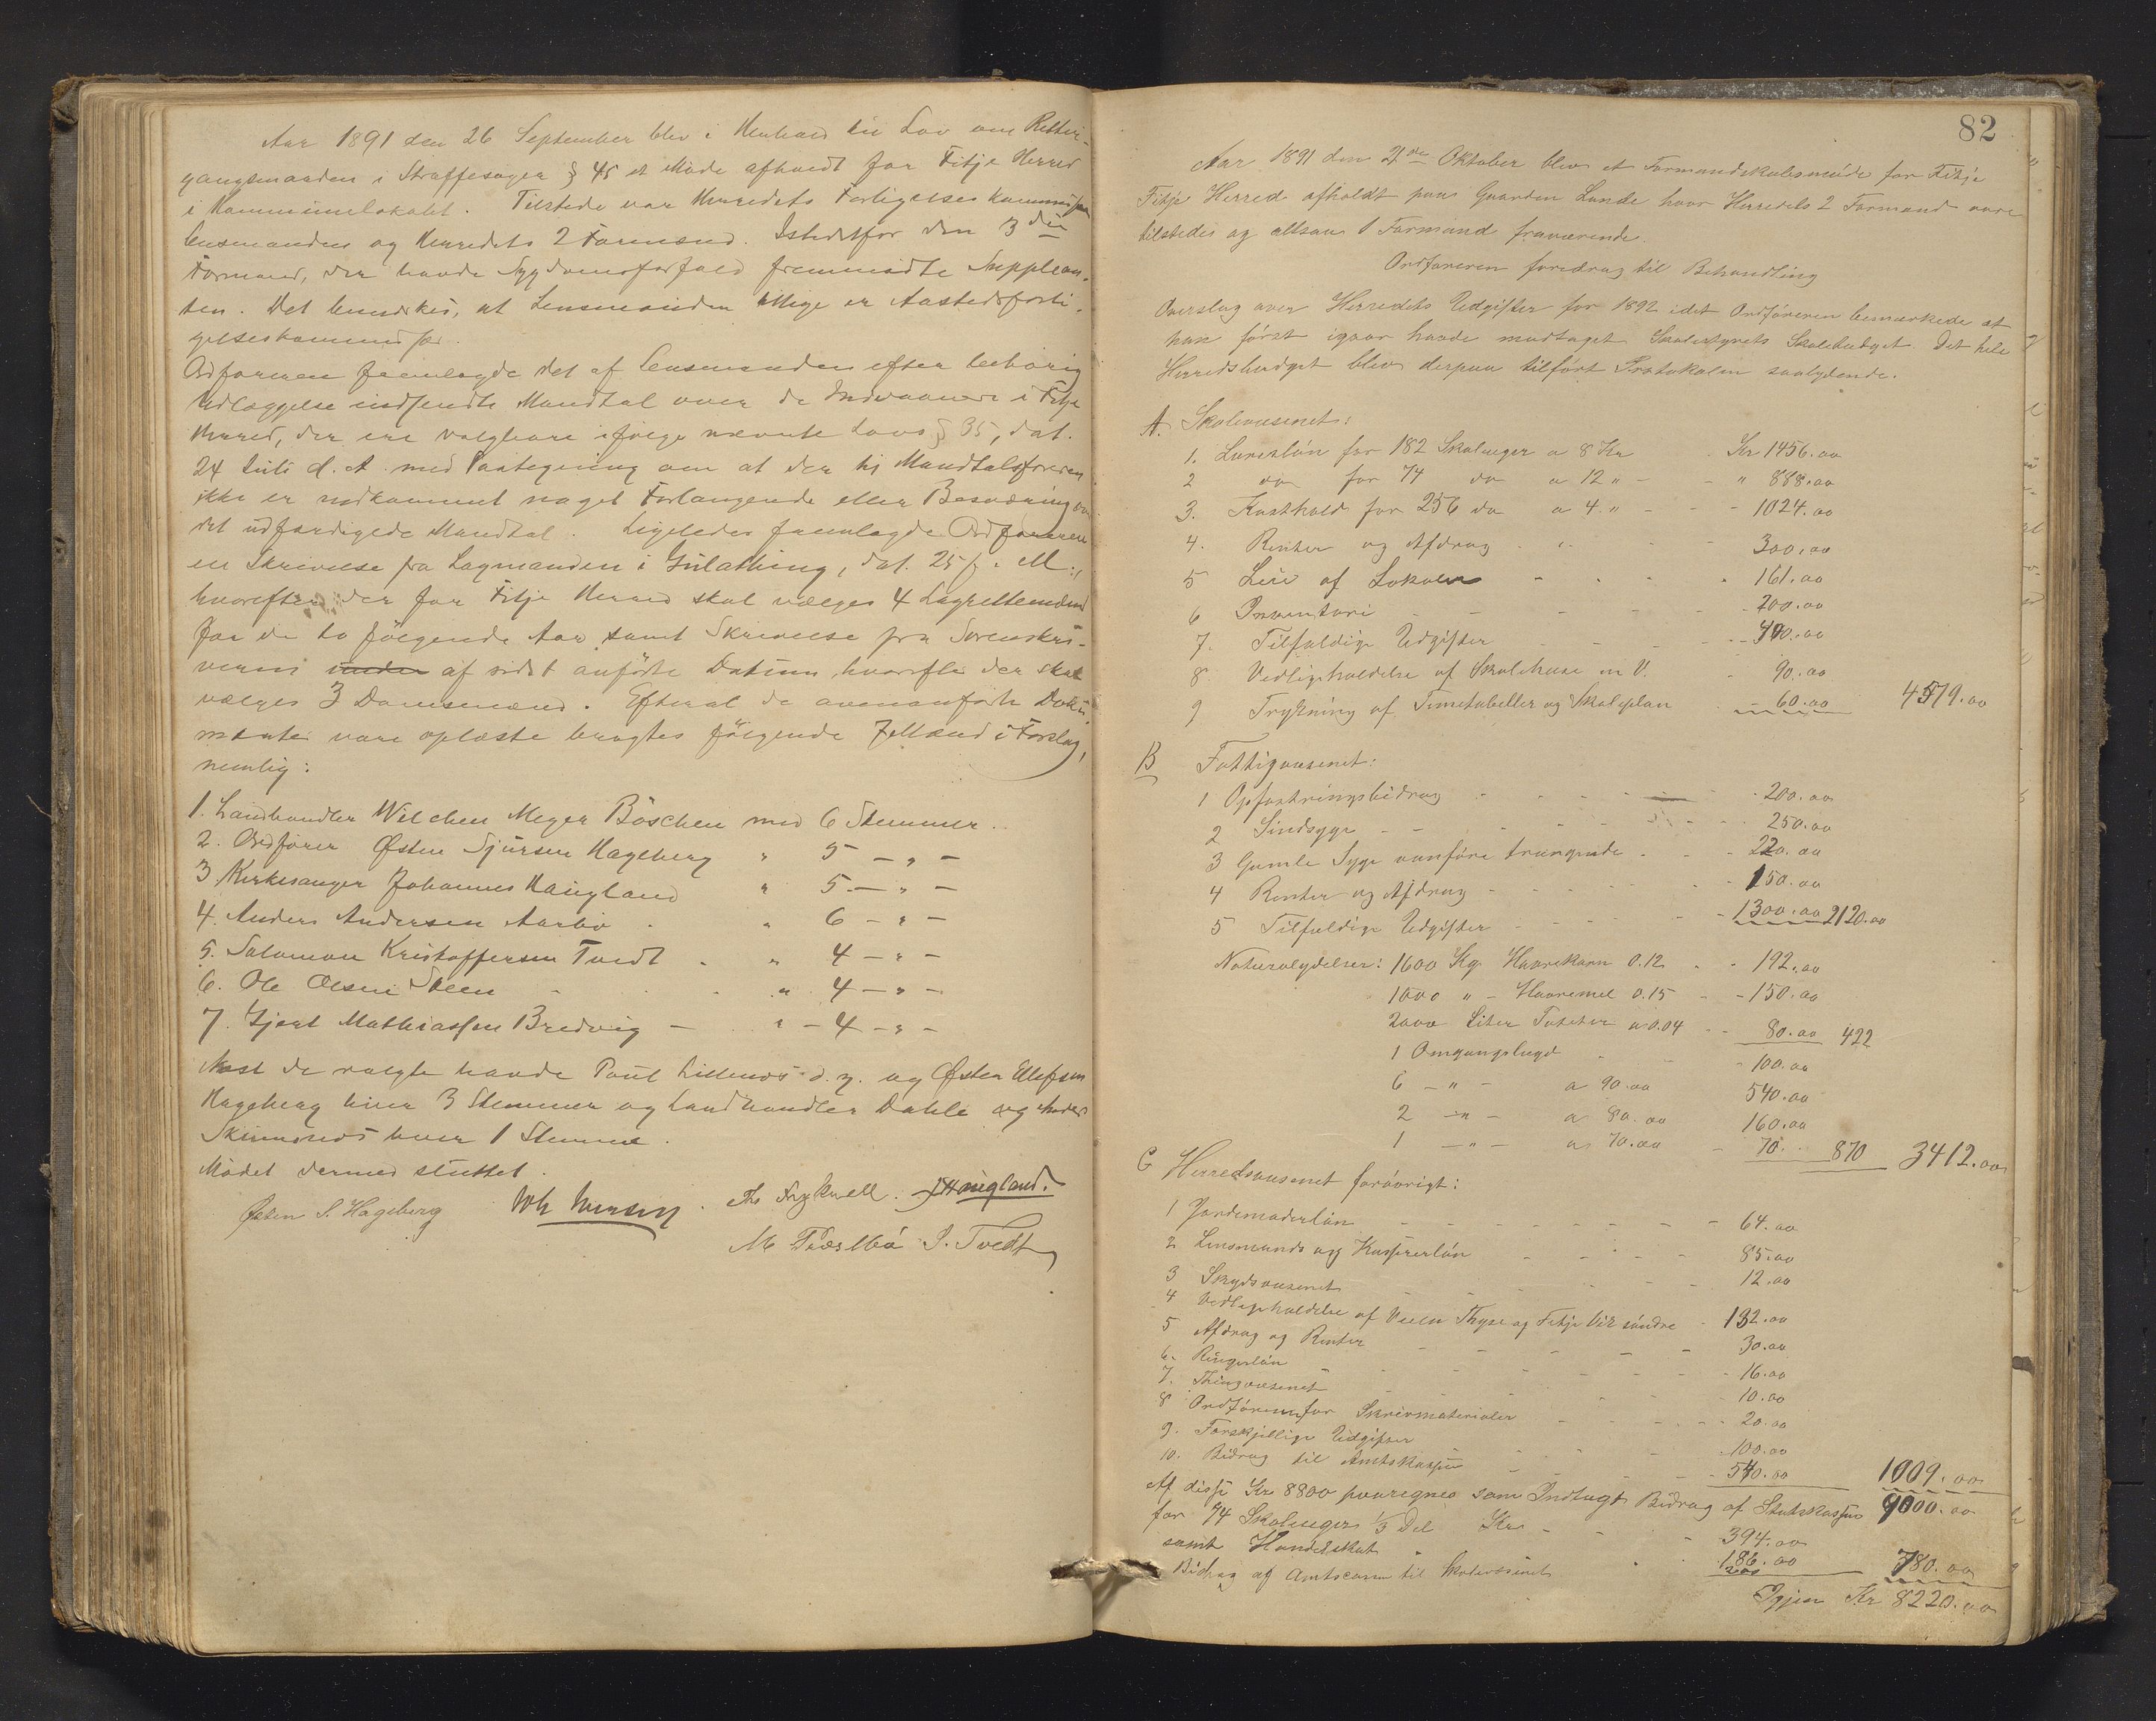 Aar 1891 den 26 September blev i Henhold til Lov om Rettergangsmaaden
i Straffesager § 45 et Møde afholdt for Fitje Herred
i Kommunelokalet. Tilstede var Herredets Forligelseskommission
Lensmanden og Herredets 2 Formænd. Istedetfor den 3die
Formand, der havde Sygdomsforfald fremmødte Supplean-
ten. Det bemærkes, at Lensmanden tillige er Aastedsforli-
gelseskommissær.
Ordføreren fremlagde det af Lensmanden efter behørig
Udlæggelse indsendte Mandtal over de Indvaanere i Fitje
Herred, der ere valgbare ifølge nævnte Lovs § 35, dat.
24 Juli d. A. med Paategning om at der til Mandtalsføreren
ikke er indkommet noget Forlangende eller Besværing over
det udfærdigede Mandtal. Ligeledes fremlagde Ordføreren
en Skrivelse fra Lagmanden i Gulathing, dat. 25 f. M.,
hvorefter der for Fitje Herred skal vælges 4 Lagrettemænd
for de to følgende Aar samt Skrivelse fra Sorenskri-
veren under af sidst anførte Datum hvorefter der skal
vælges 3 Domsmænd. Efterat de ovenanførte Doku-
menter vare oplæste bragtes følgende 7 Mænd i Forslag,
nemlig:
1. Landhandler Wilchen Meyer Böschen med 6 Stemmer.
2. Ordfører Østen Sjursen Hageberg " 5 — " —
3. Kirkesanger Johannes Haugland " 5 — " —
4. Anders Andersen Aarbø " 6 — " —
5. Salomon Kristoffersen Tvedt " 4 — " —
6. Ole Olsen Steen " 4 — " —
7. Hjert Mathiassen Bredvig — " — 4 — " —
Næst de valgte havde Poul Lillenæs d. y. og Østen Ellefsen
Hageberg hver 3 Stemmer og Landhandler Dahle og Anders
hver 1 Stemme.
Mødet dermed sluttet.
Østen S. Hageberg Th Frykvell. J Haugland.
S. Tvedt
82
Aar 1891 den 21de Oktober blev et Formandskabsmøde for Fitje
Fitje Herred afholdt paa Gaarden Lunde hvor Herredets 2 Formænd vare
tilstedes og altsaa 1 Formand fraværende.
Ordføreren foredrog til Behandling
Overslag over Herredets Udgifter for 1892 idet Ordføreren bemærkede at
han først igaar havde modtaget Skolestyrets Skolebudget. Det hele
Herredsbudget blev derpaa tilført Protokolen saalydende.
A. Skolevæsenet:
1. Læreløn for 182 Skoleuger a 8 Kr Kr 1456.00
2 do for 74 do a 12 " - " 888.00
3. Kosthold for 256 do a 4 " - - - 1024.00
4. Renter og Afdrag - 300.00
5 Leie af Lokaler - - - 161.00
6 Inventari - - - 200.00
7. Tilfældige Udgifter - - - 400.00
8. Vedligeholdelse af Skolehuse m V. - 90.00
9 Trykning af Timetabeller og Skoleplan 60.00 4579.00
B Fattigvæsenet:
1 Opfostringsbidrag - - - 200.00
2 Sindsyge - - - 250.00
3 Gamle Syge vanføre trængende - - 220.00
4 Renter og Afdrag - - - 150.00
5 Tilfældige Udgifter - - - 1300.00 2120.00
Naturalydelser: 1600 Kg. Havrekorn 0.12 - 192.00
1000 " - Havremel 0.15 - 150.00
2000 Liter Poteter a 0.04 - 80.00 422
1 Omgangslægd - 100.00
6 — " — a 90.00 540.00
2 — " — a 80.00 160.00
1 — " — a 70.00 70. 870 3412.00
C Herredsvæsenet forøvrigt:
1 Jordemoderløn - - - 64.00
2 Lensmands og Kassererløn - - - 85.00
3 Skydsvæsenet - - - 12.00
4 Vedligeholdelse af Veien Thyse og Fitje Vik søndre - 132.00
5 Afdrag og Renter - - - 30.00
6. Ringerløn - - - 16.00
7. Thingvæsenet - - - 10.00
8 Ordføreren for Skrivmaterialer - - - 20.00
9. Forskjellige Udgifter - - - 100.00
10. Bidrag til Amtskassen - - - 540.00 1009.00
Af disse Kr 8800 paaregnes som Indtægt Bidrag af Statskassen 9000.00
for 74 Skoleuger 1/3 Del Kr - - 394.00
samt Handelskat - 186.00
Bidrag af Amtscassen til Skolevæsenet 200 780.00
Igjen Kr 8220.00